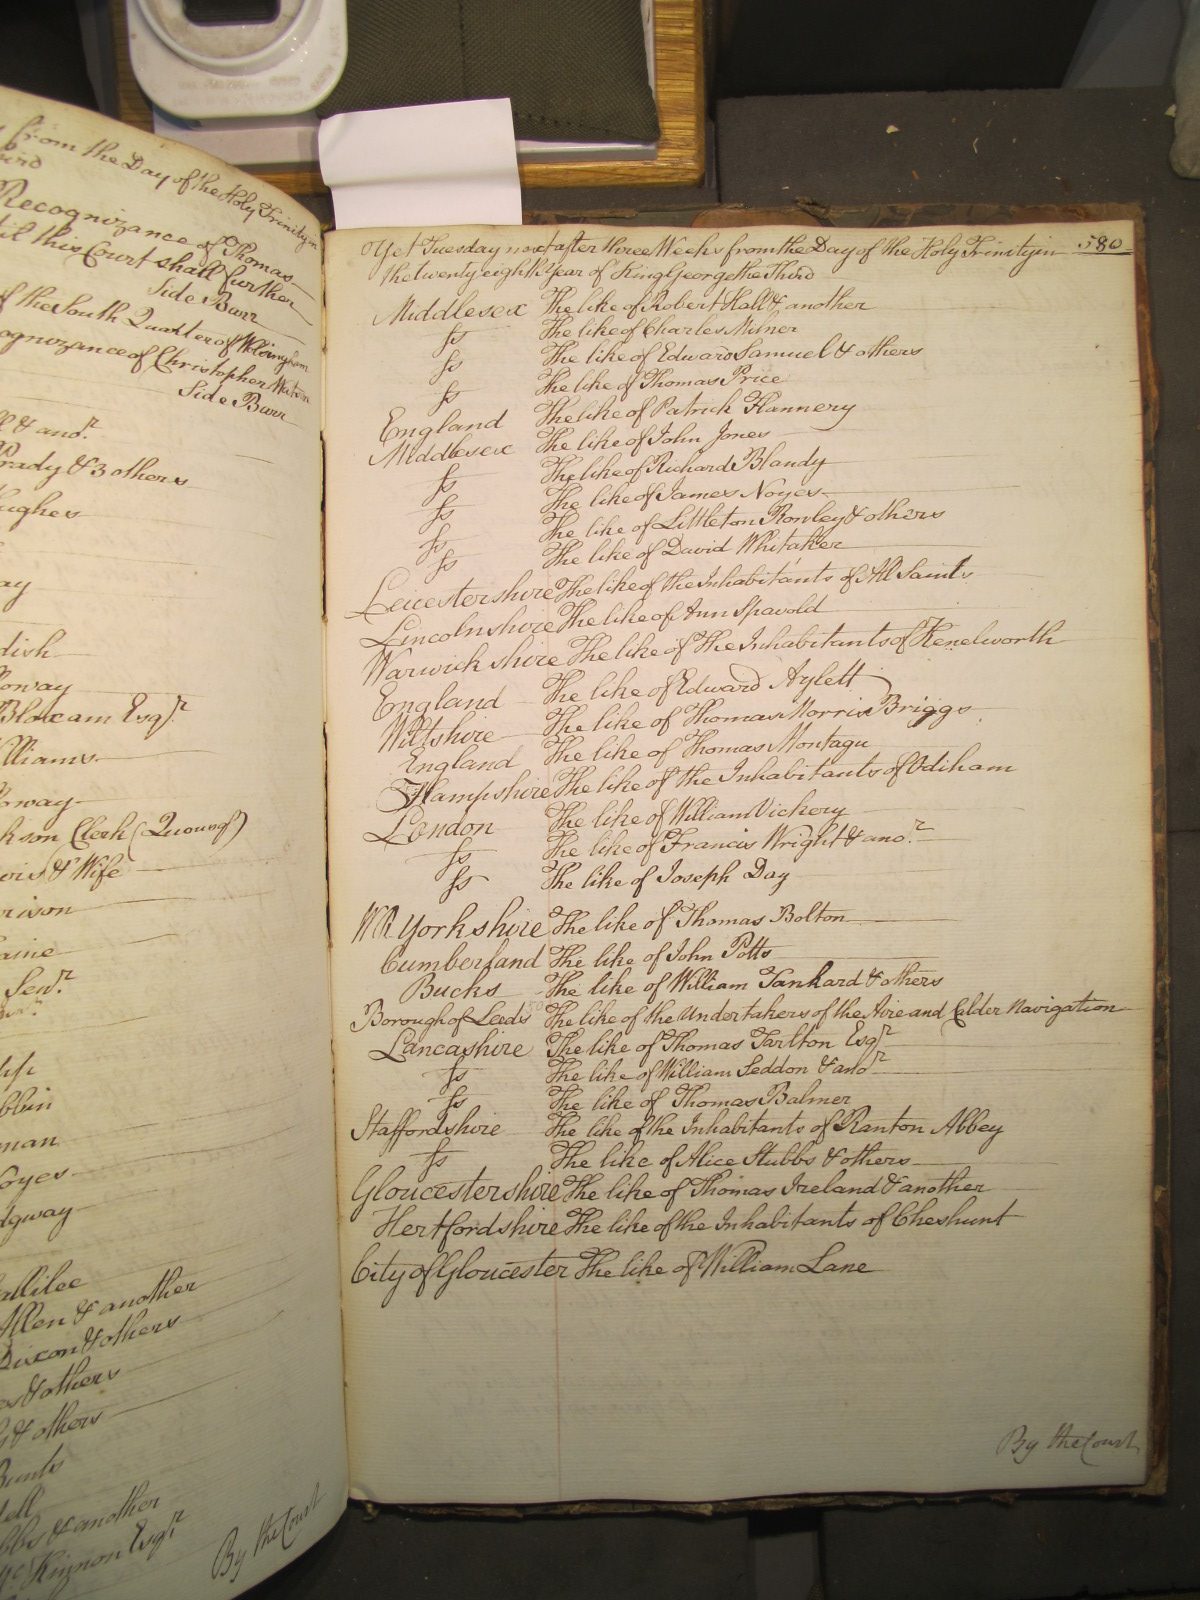 from the Day of the Holy Trinity in
Recognizance of Thomas
til this Court shall further
Side Barr
of the South Quarter of
ognizance of Christopher
Side Barr
& ano.r
rady & 3 others
ughes
ay
dish
oway
Bloxam Esq.r
illiams
oway
kson Clerk
is & Wife
rison
aine
Sen.r
man
oyes
dgway
allilee
Allen & another
Dixon & others
es & others
& others
Bunts
dell
bbs & another
Kinnon Esq.r
By the Court
580
Yet Tuesday next after three Weeks from the Day of the Holy Trinity in
the twenty eighth Year of King George the Third
Middlesex The like of Robert Hall & another
ss The like of Charles Milner
ss The like of Edward Samuel & others
ss The like of Thomas Price
England The like of Patrick Flannery
Middlesex The like of John Jones
ss The like of Richard Blandy
ss The like of James Noyes
ss The like of Littleton Rowley & others
ss The like of David Whitaker
Leicestershire The like of the Inhabitants of All Saints
Lincolnshire The like of Ann Spavold
Warwickshire The like of The Inhabitants of Kenelworth
England The like of Edward Aylett
Wiltshire The like of Thomas Morris Briggs
England The like of Thomas Montagu
Hampshire The like of the Inhabitants of Odiham
London The like of William Vickery
ss The like of Francis Wright & ano.r
ss The like of Joseph Day
WR Yorkshire The like of Thomas Bolton
Cumberland The like of John Potts
Bucks The like of William Tankard & others
Borough of Leeds The like of the Undertakers of the Aire and Calder Navigation
Lancashire The like of Thomas Tarlton Esq.r
ss The like of William Seddon & ano.r
ss The like of Thomas Balmer
Staffordshire The like of the Inhabitants of Ranton Abbey
ss The like of Alice Stubbs & others
Gloucestershire The like of Thomas Ireland & another
Hertfordshire The like of the Inhabitants of Cheshunt
City of Gloucester The like of William Lane
By the Court